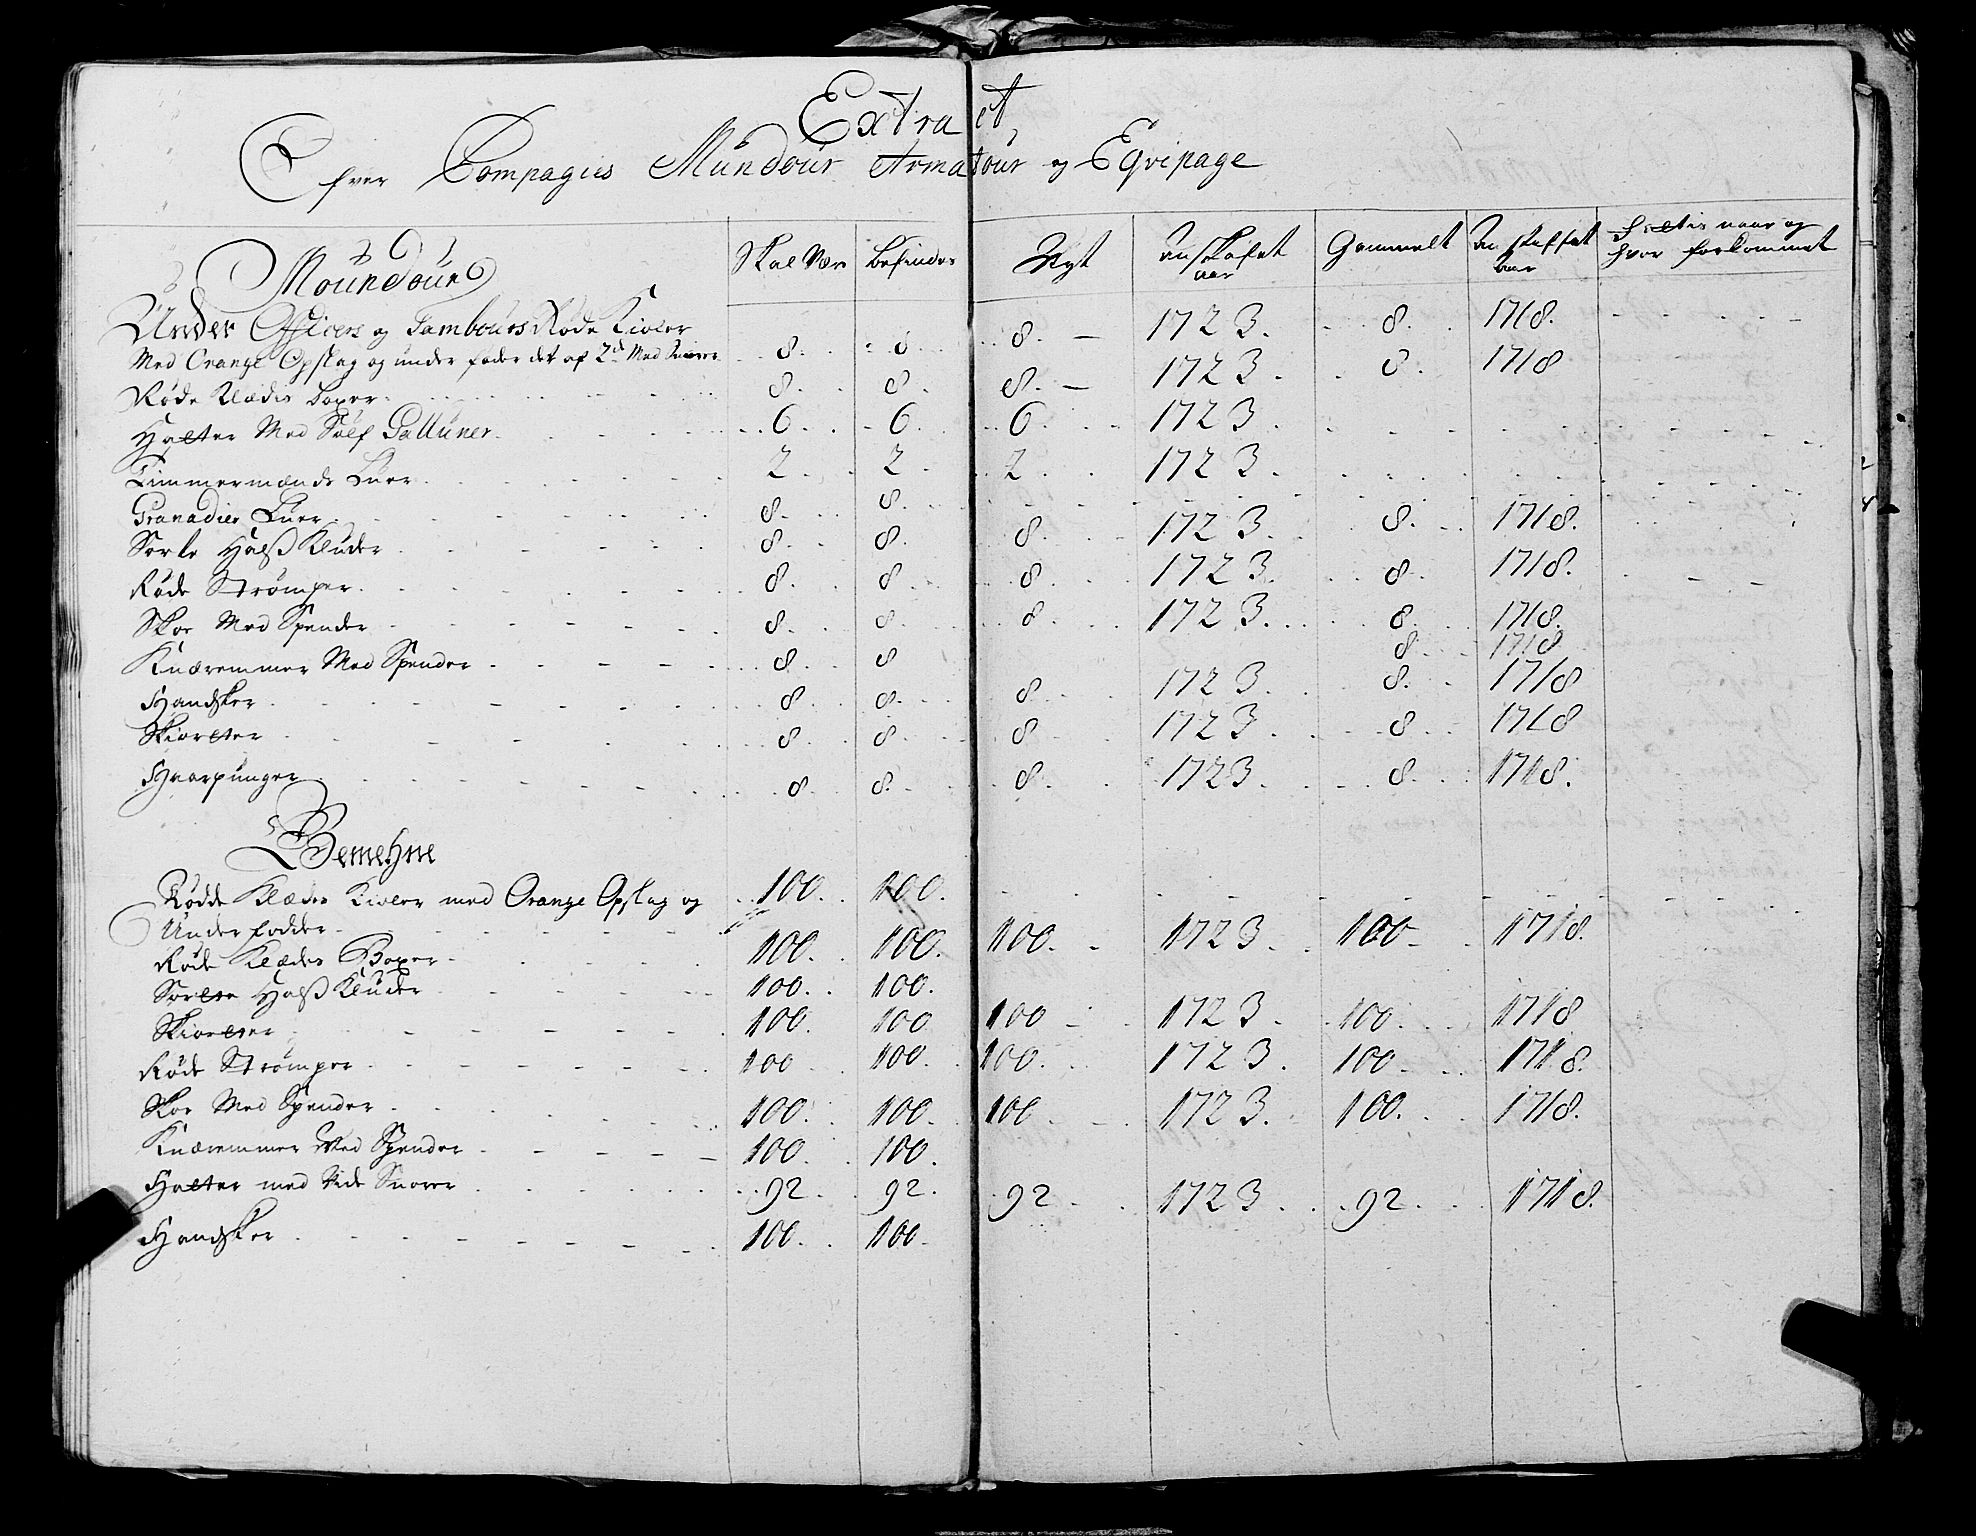 Extract
Ofver Compagies Mundour Armatour og Eqvipage
Moundour Skal Vær befindes Nyt an skafet aar Gammelt An skaffet aar naar og hvor forkommet
Under Officers og Tambours Røde Kioler
Med Orange Opslag og under foder det af 2d Med Snorer 8 8 8 1723. 8. 1718.
Røde Klædis boxer 8. 8. 8. 1723. 8. 1718
Hatter Med Sølf Galluner 6 6. 6. 1723.
Timmermænds Luer 2 2. 2. 1723.
Granadier Luer 8. 8.
Sorte Halß Kluder 8. 8. 8. 1723. 8. 1718.
Røde Strømper 8. 8. 8. 1723. 8. 1718.
Skoe Med Spender 8. 8. 8. 1723. 8. 1718.
Knæremmer Med Spender 8 8 8. 1718
Handsker 8 8. 8. 1723. 8. 1718
Skiorter 8 8. 8 1723. 8 1718
Haarpunger 8 8. 8. 1723. 8. 1718.
Gemehne
Rødde Klædes Kioler med Orange Opslag og 100. 100.
Underfodder 100. 1723. 100. 1718.
Røde Klædes Boxer 100. 100.
Sorte Halß Kluder 100. 100.
Skiorter 100. 100 100 1723. 100. 1718
Røde Strømper 100 100. 100. 1723. 100. 1718.
Skoe Med Spender 100. 100. 100 1723. 100. 1718.
Knæremmer Med Spender 100. 100.
Hatter med Snorer 92. 92. 92 1723. 92. 1718.
Handsker 100. 100.